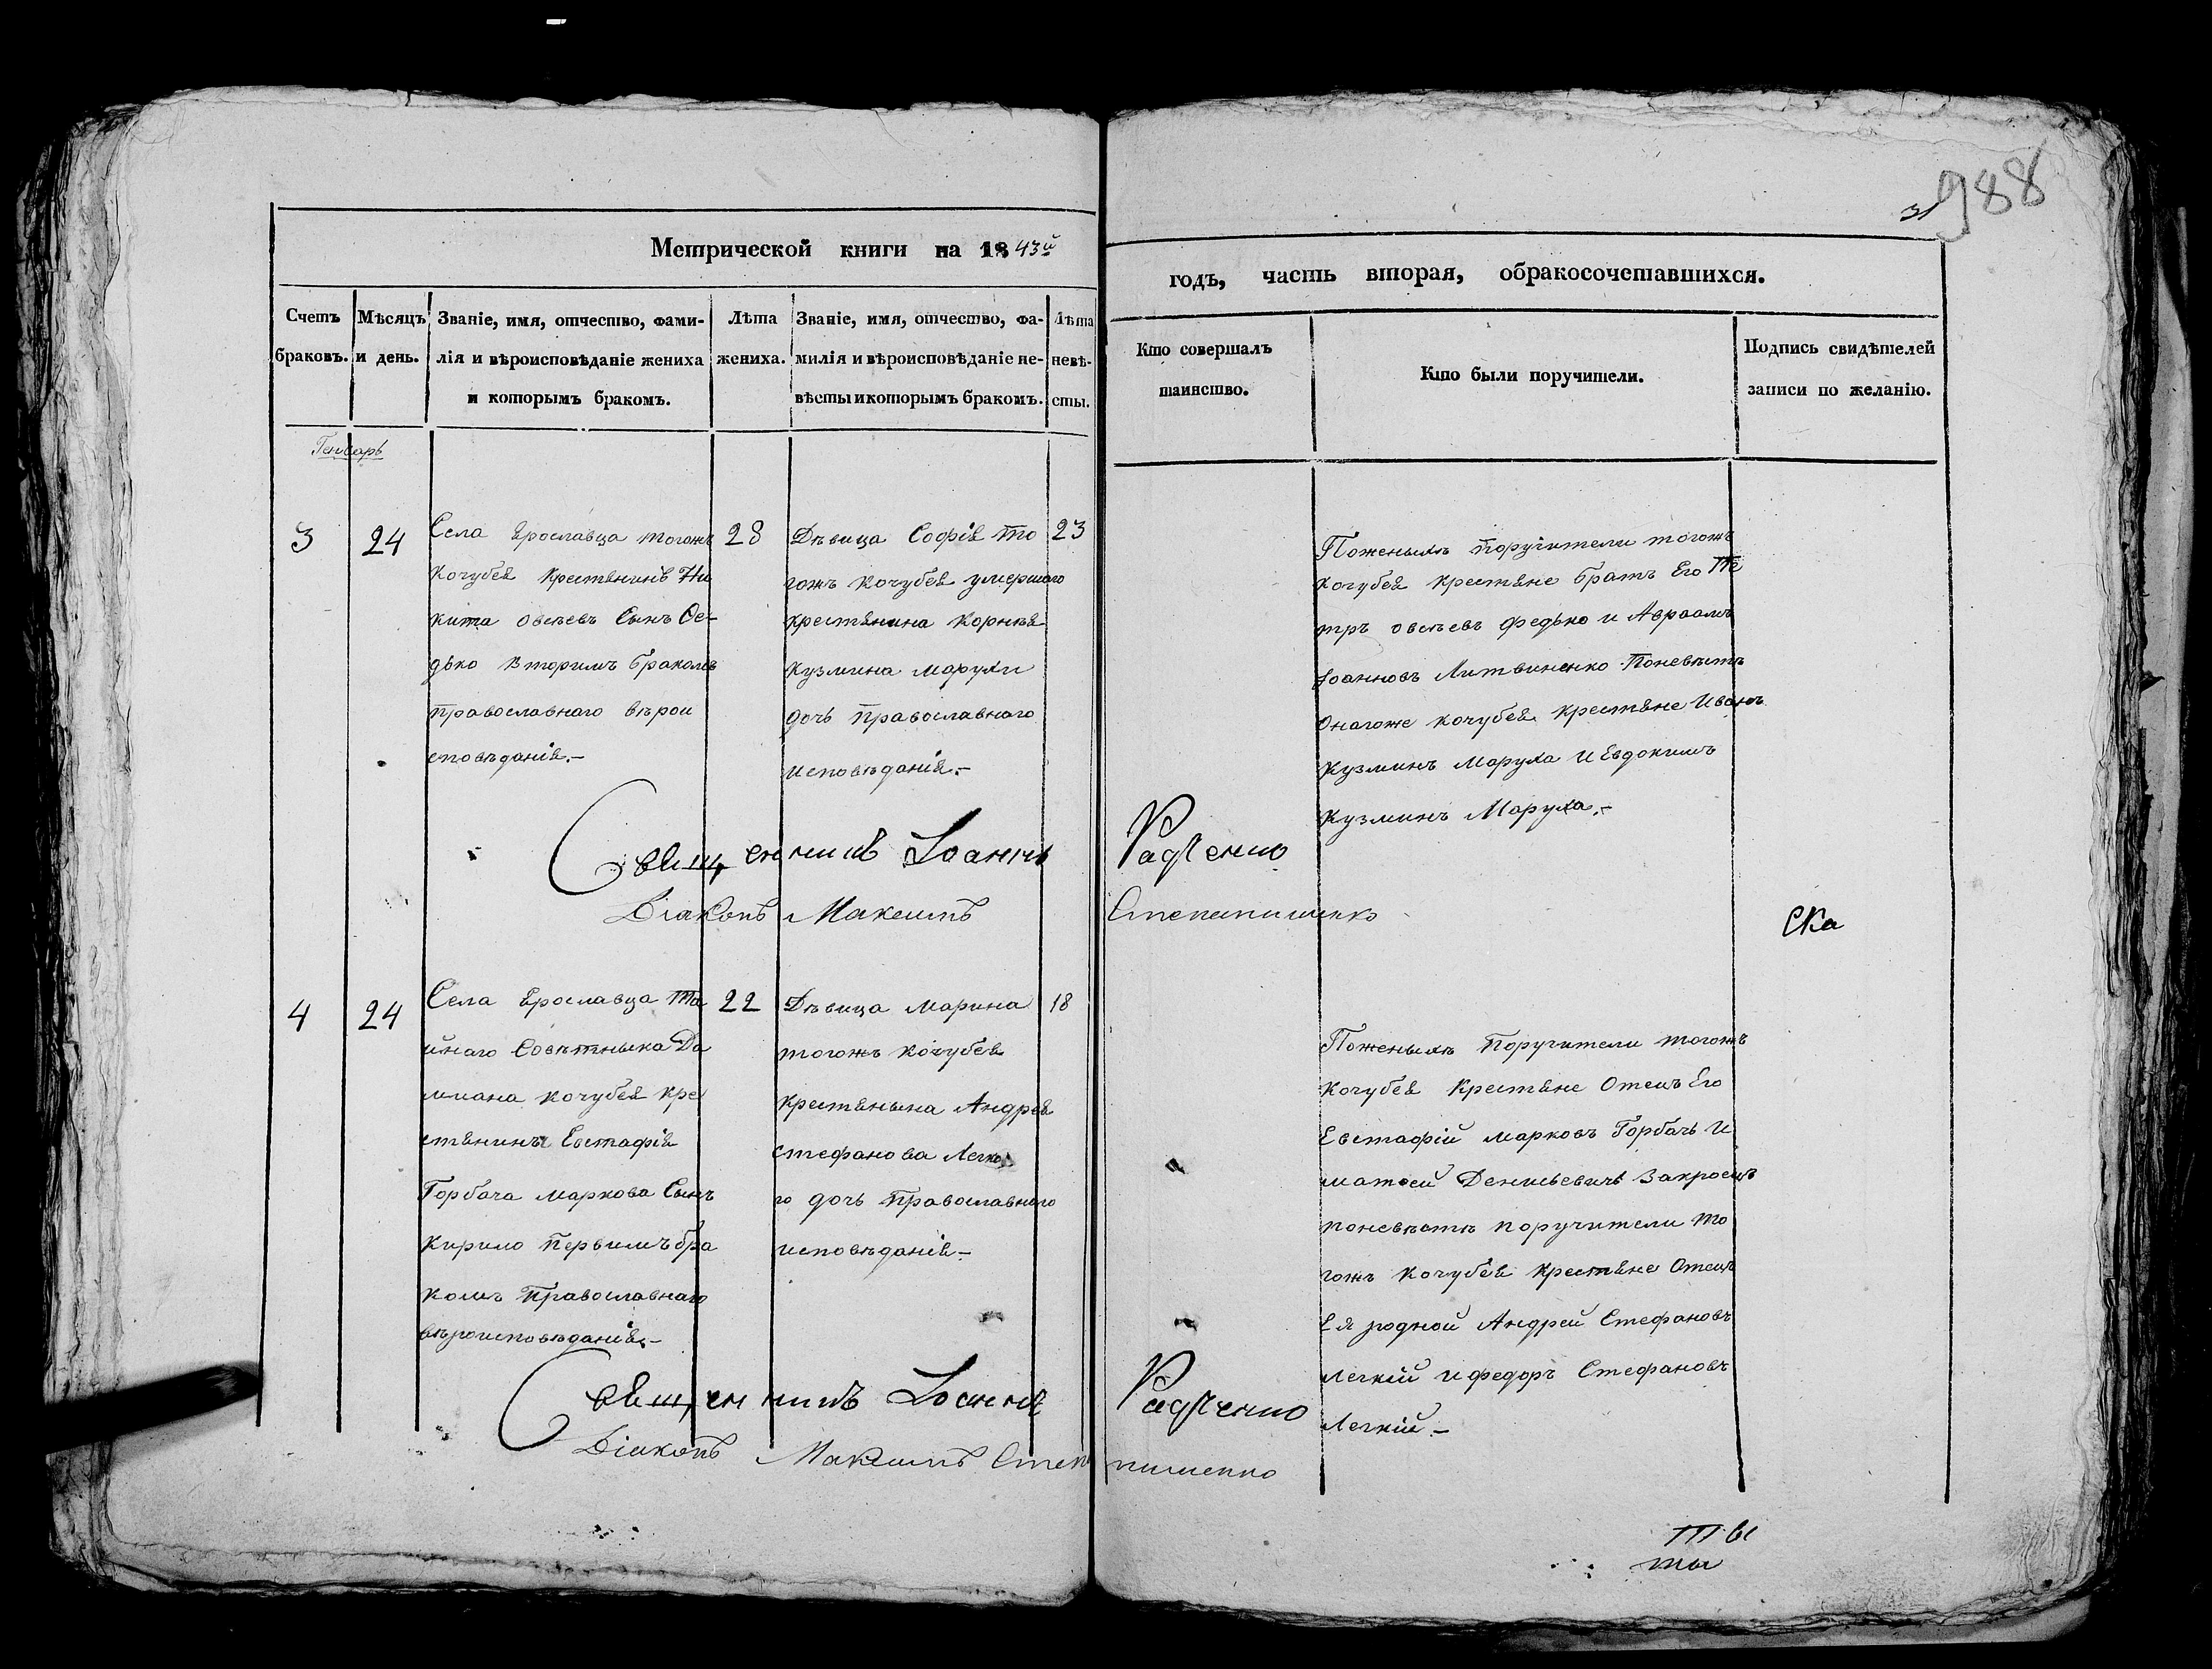 988
31
Метрической книги на 1843й
годъ, часть вторая, обракосочетавшихся.
Счетъ браковъ.
Мѣсяцъ и день.
Званіе, имя, отчество, фами-
лія и вѣроисповѣданіе жениха
и которымъ бракомъ.
Лѣта
жениха.
Званіе, имя, отчество, фа-
милія и вѣроисповѣданіе не-
вѣсты и которымъ бракомъ.
Лѣта
невѣ-
сты.
Кто совершалъ
таинство.
Кто были поручители.
Подпись свидѣтелей
записи по желанію.
Генварь
3
24
Села Ярославца тогожъ
Кочубея Крестянинъ Ни
кита овсѣевъ Сынъ Ѳе-
дько вторимъ бракомъ
православнаго вѣрои
сповѣданія.-
28
Дѣвица Софія то
гожъ Кочубея умершаго
крестянина Корнѣя
Кузмина марухи
дочь православнаго
исповѣданія.-
23
Поженыхѣ поручители тогожъ
кочубея крестяне братъ Его Пе
тръ овсѣевъ федько и Авраамъ
Іоанновъ Литвиненко Поневѣстѣ
онагоже кочубея крестяне Иванъ
Кузминъ маруха и Евдокимъ
Кузминъ Маруха.-
Священникъ Іоаннъ Радченко
Діаконъ Максимъ Степаниненко
ска
4
24
Села Ярославца та
йнаго Совѣтныка Да
миана кочубея кре
стянинъ Евстафія
Горбача маркова Сынъ
Кирило первимъ бра
комъ православнаго
вѣроисповѣданія.-
22
Дѣвица марина
тогожъ кочубея
крестянына Андрея
стефанова Легка
го дочь православнаго
исповѣданія-
18
Поженыхѣ поручители тогожъ
Кочубея Крестяне отецъ Его
Евстафій марковъ Горбачъ и
матѳей Денисьевичъ Закроецъ
поневѣстѣ поручители то
гожъ Кочубея крестяне отецъ
Ея родной Андрей Стефановъ
Легкій и федоръ Стефановъ
Легкій.-
Священникъ Іоаннъ Радченко
Діаконъ Максимъ
ты